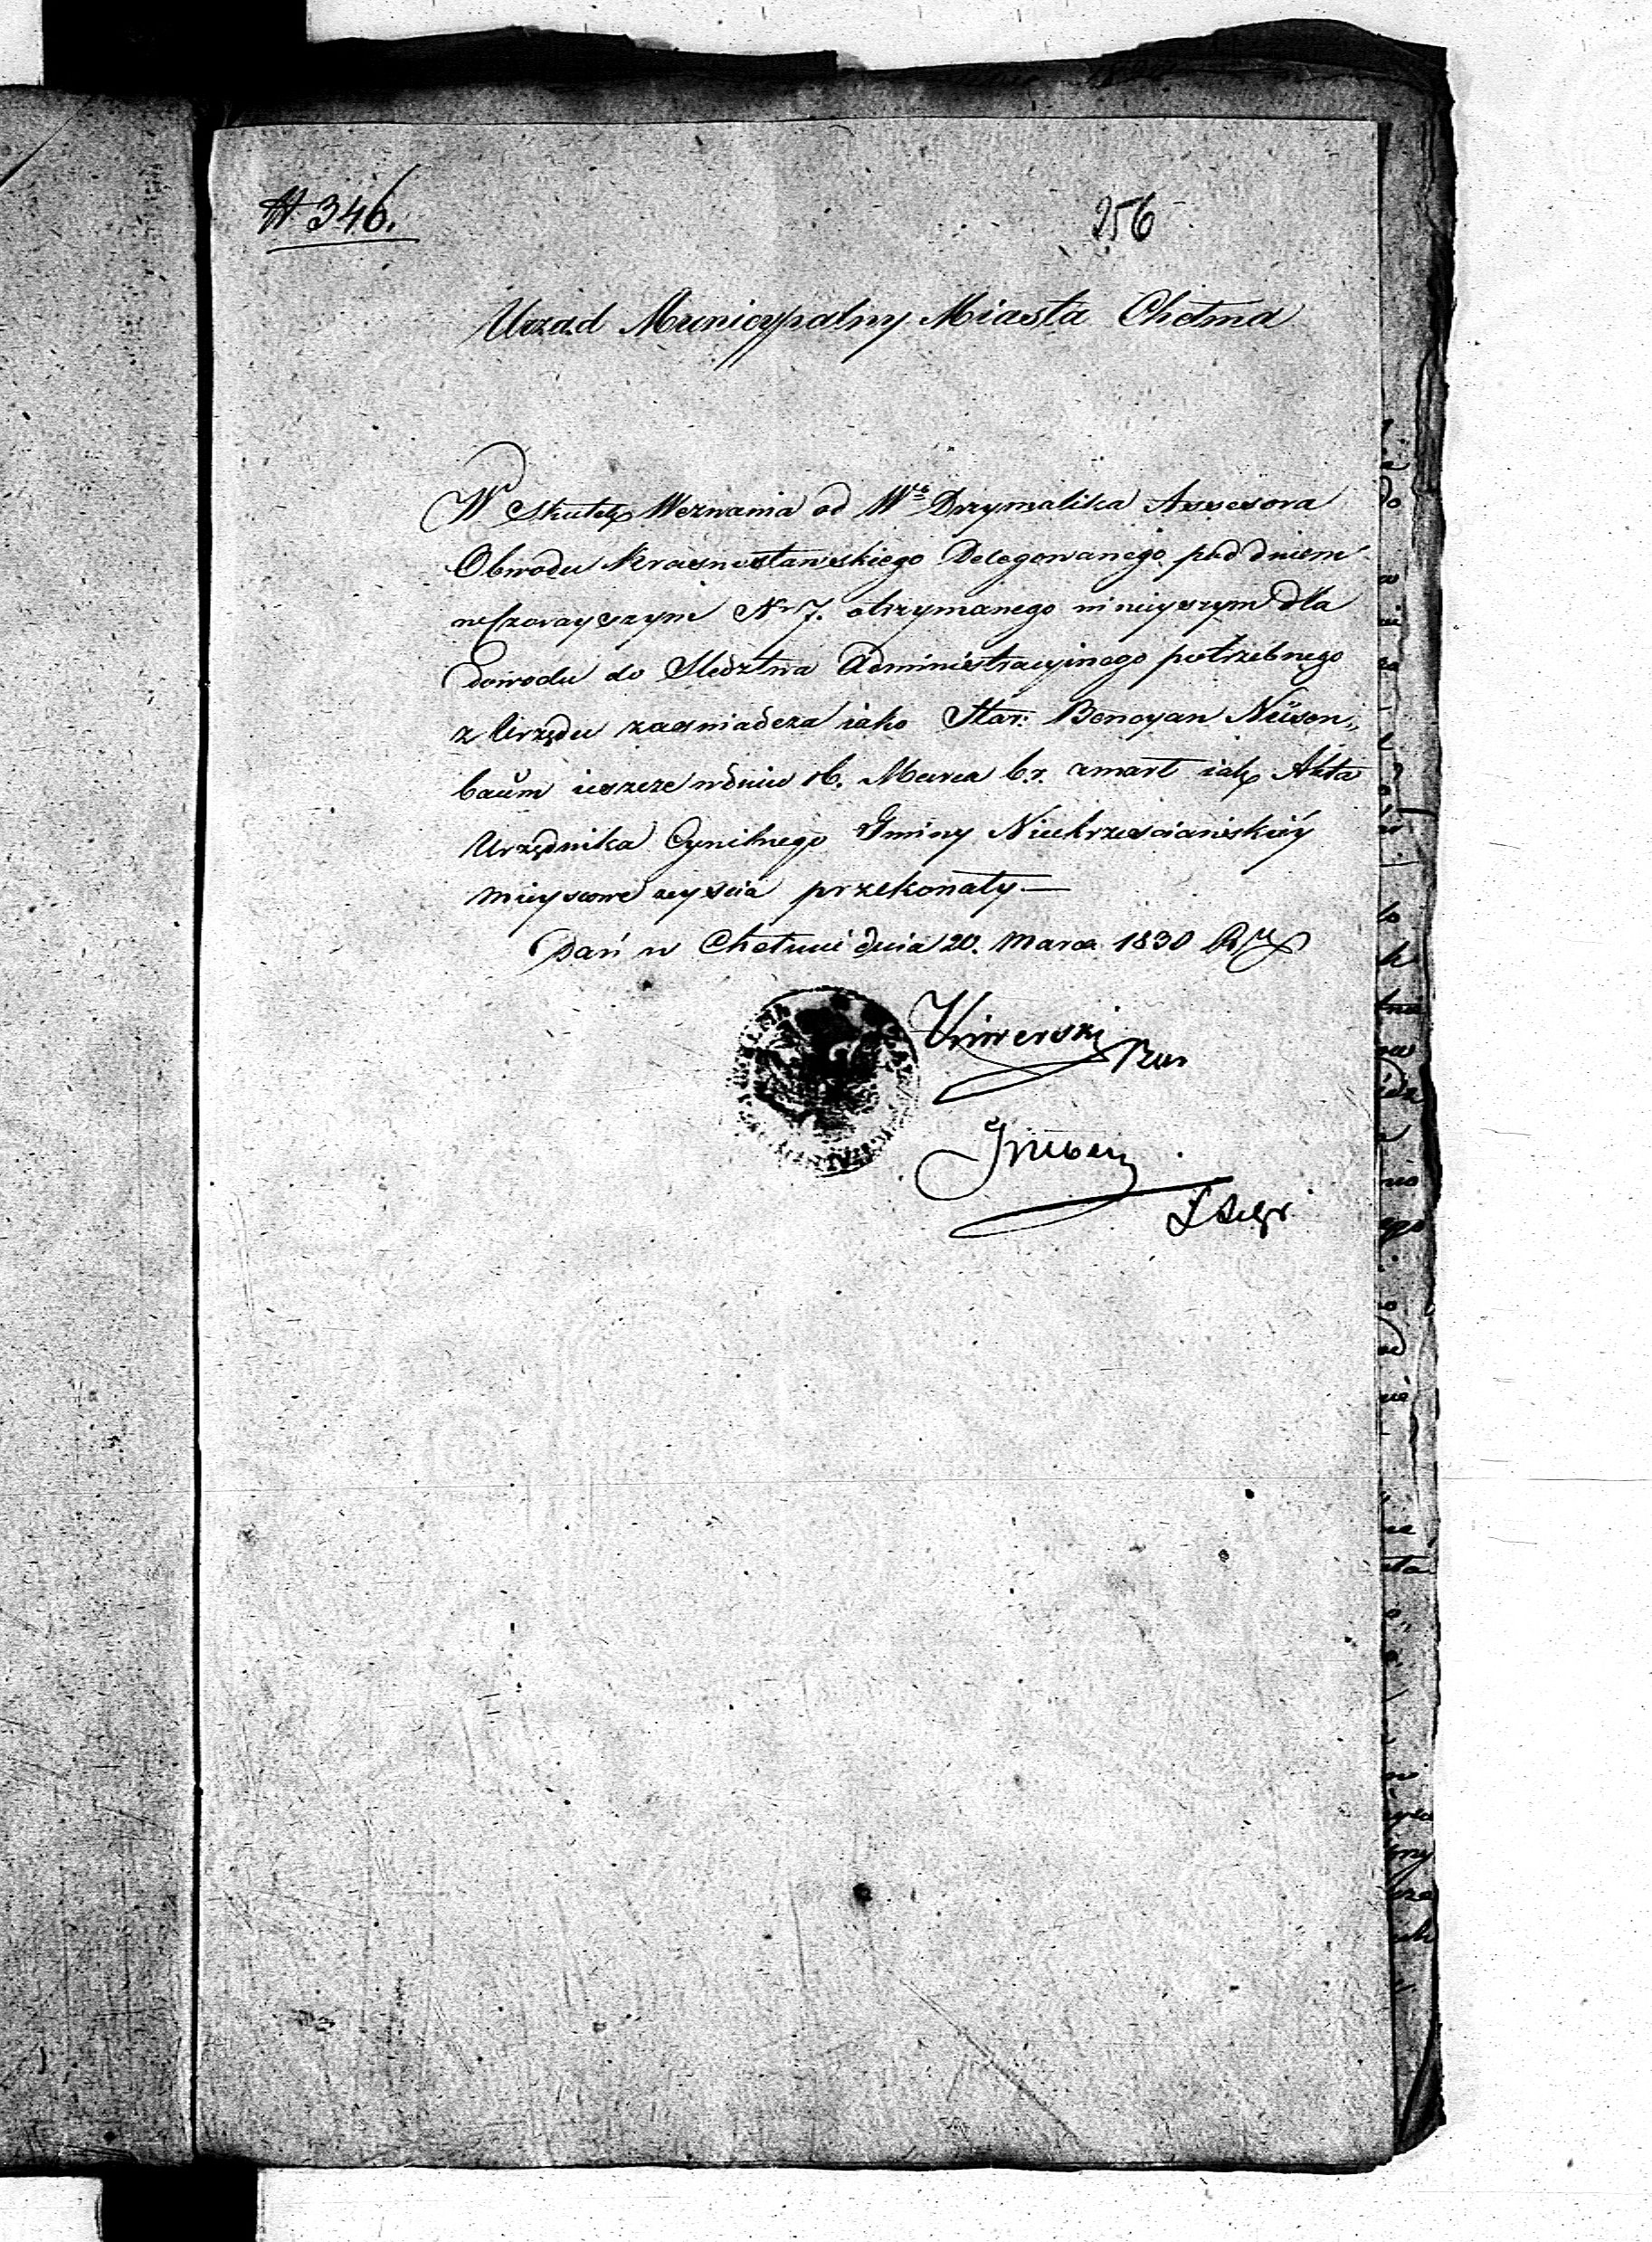 N 346.
256
Urzad Municypalny Miasta Chełma
W Skutek Wezwania od Wgo Drzymalika Assesora
Obwodu Krasnostawskiego Delegowanego pod dniem
wczorayszym Nr 7. otrzymanego ninieyszym dla
dowodu do Sledztwa Administracyinego potrzebnego
z Urzędu zaswiadcza iako Star: Bencyan Neüsen,,
baŭm ieszcze w dniu 16. Marca b.r. zmarł iak Akta
Urzędnika Cywilnego Gminy Niechrzesciańskiéy
mieyscowe zeyscia przekonały —
Dań w Chełmie dnia 20. Marca 1830 Rku